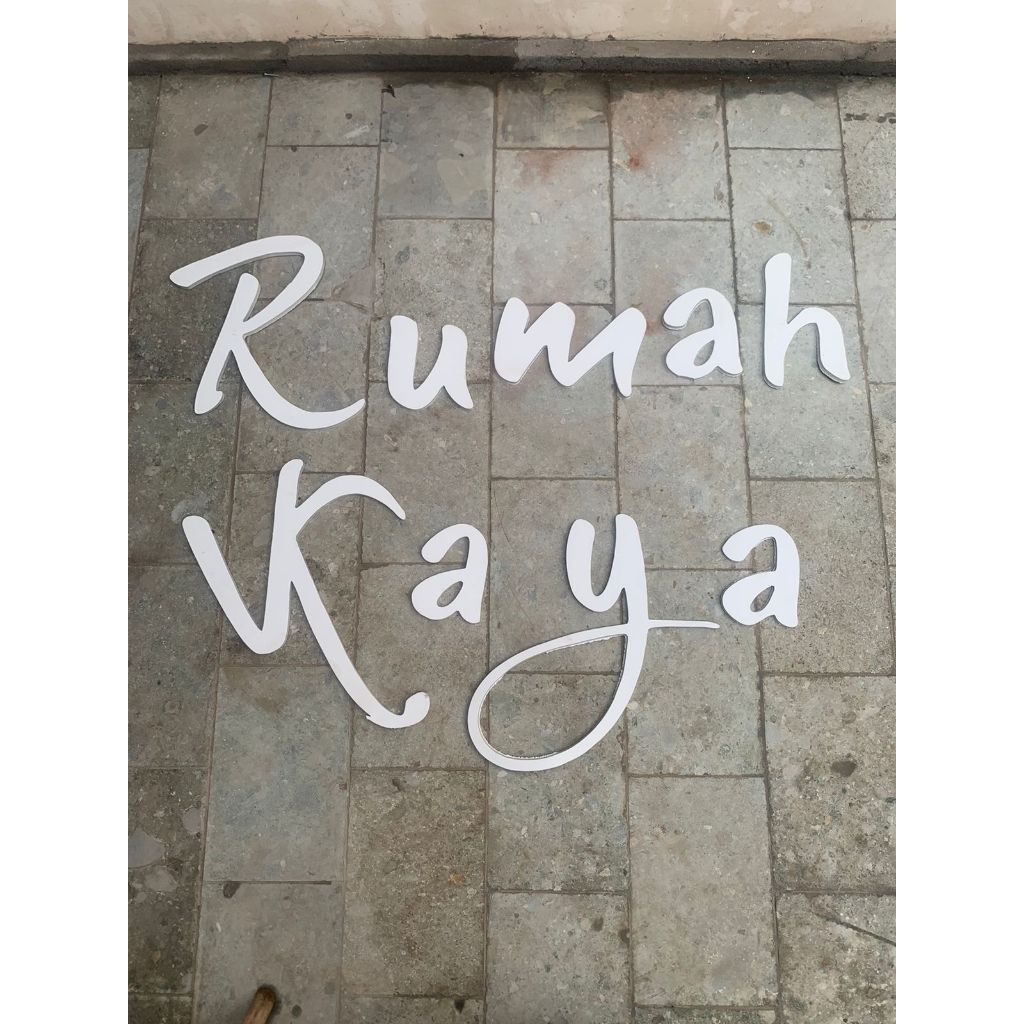 Rumah
Kaya